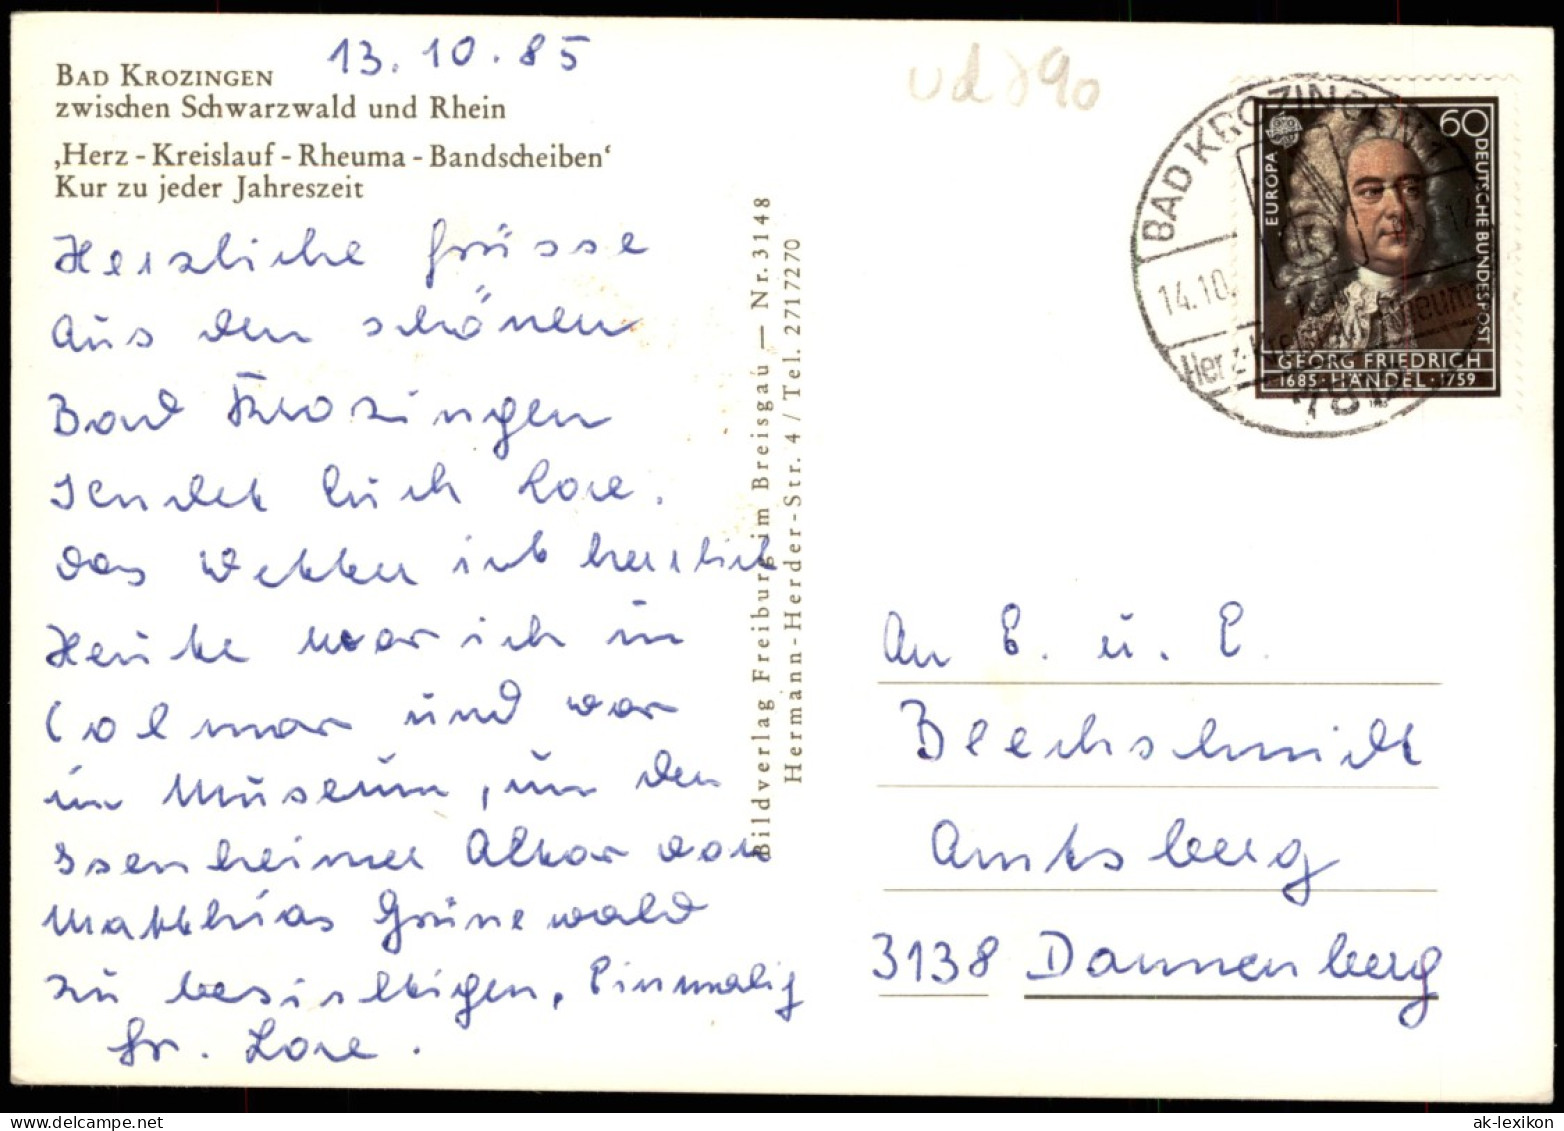 13.10.85
BAD KROZINGEN
zwischen Schwarzwald und Rhein
‚Herz - Kreislauf - Rheuma - Bandscheiben‘
Kur zu jeder Jahreszeit
Herzliche Grüsse
Aus den schönen
Bad Krozingen
Sendet Euch Lore.
das Wetter ist herrlich
Heute war ich in
Colmar und war
im Museum, um den
Issenheimer Altar von
Matthias Grünewald
zu besichtigen, Einmalig
Gr. Lore.
Bildverlag Freiburg im Breisgau — Nr. 3148
Hermann-Herder-Str. 4 / Tel. 2717270
BAD KROZINGEN 1
14.10.
Herz-Kreislauf
Rheuma
7812
60
EUROPA
DEUTSCHE BUNDESPOST
GEORG FRIEDRICH
1685 · HÄNDEL · 1759
An E. u. E.
Blechschmidt
Amtsberg
3138 Dannenberg
ak-lexikon